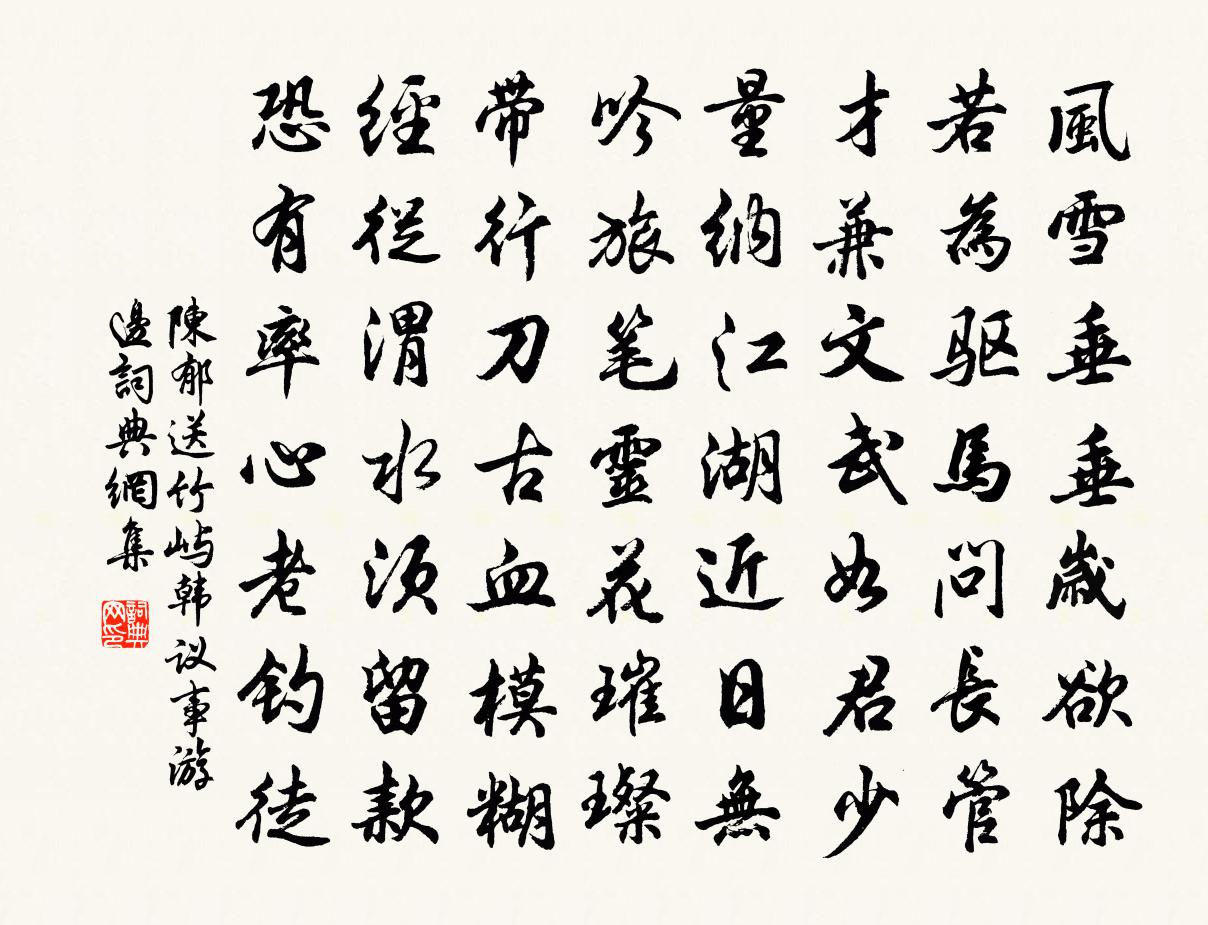 風雪垂垂歲欲除
若為驱馬问長管
才兼文武如君少
量纳江湖近日無
吟旅笔靈花璀璨
带行刀古血模糊
經從渭水须留款
恐有率心老钓徒
陳郁送竹屿韩议事游
邊詞典網集
詞典网印